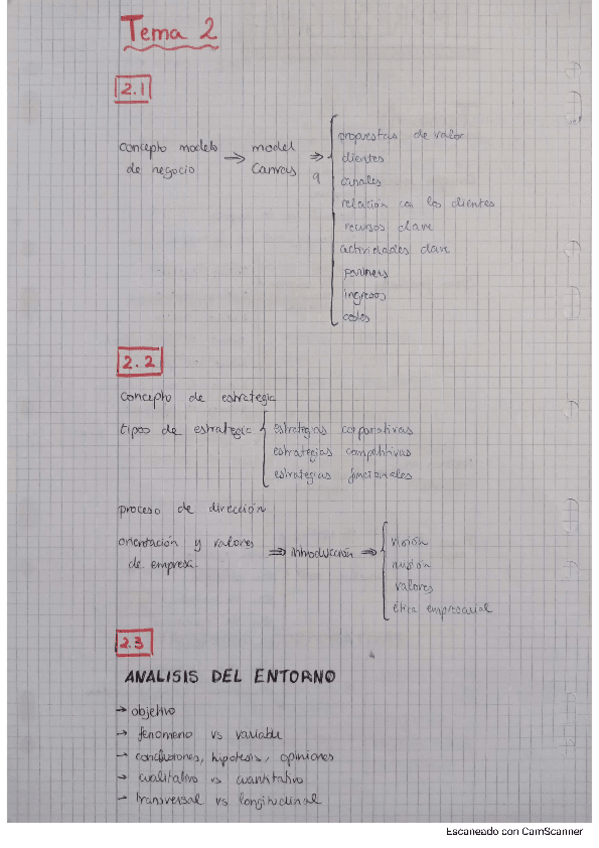 Tema 2
2.1
concepto modelo de negocio → model Canvas ⇒
9
propuestas de valor
clientes
canales
relación con los clientes
recursos clave
actividades clave
partners
ingresos
costes
2.2
concepto de estrategia
tipos de estrategia
estrategias corporativas
estrategias competitivas
estrategias funcionales
proceso de dirección
orientación y valores de empresa. ⇒ introducción ⇒
visión
misión
valores
ética empresarial
2.3
ANALISIS DEL ENTORNO
→ objetivo
→ fenomeno vs variable
→ conclusiones, hipotesis, opiniones
→ cualitativo vs cuantitativo
→ transversal vs longitudinal
Escaneado con CamScanner